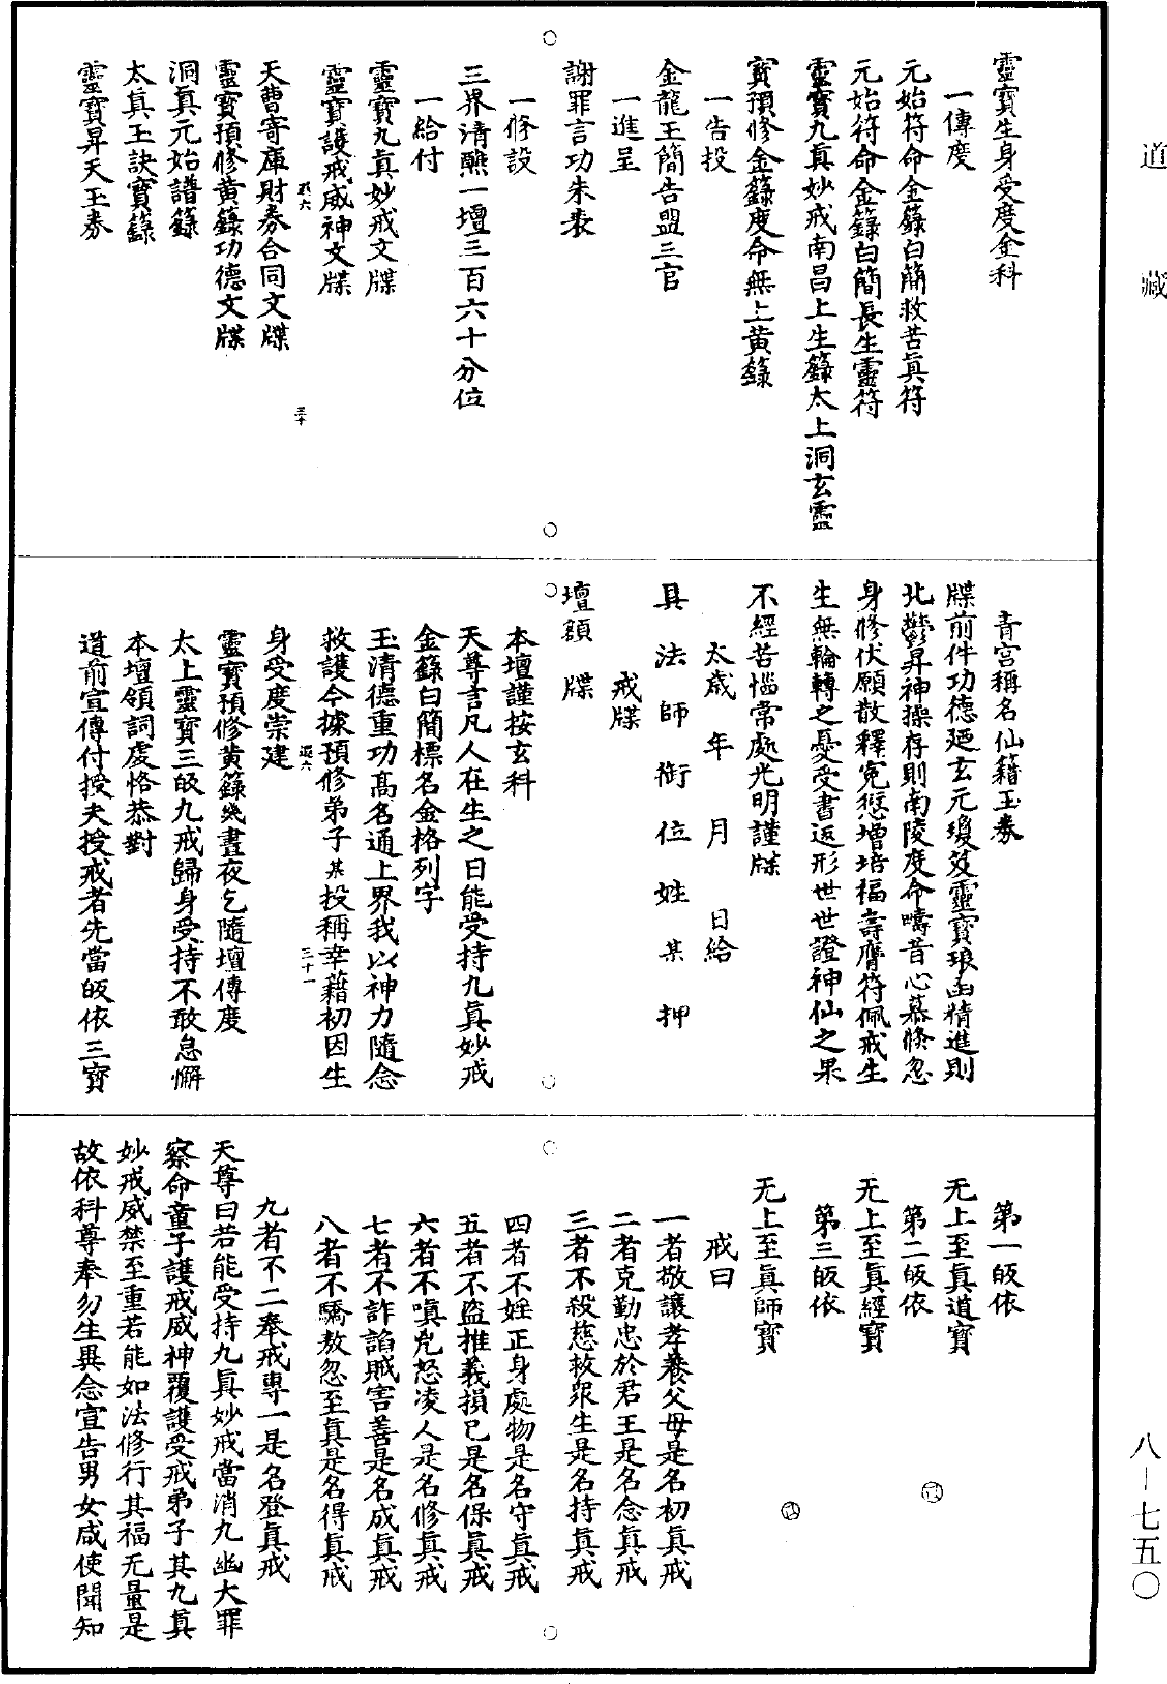 道藏
靈寶生身受度金科
一傳度
元始符命金籙白簡救苦眞符
元始符命金籙白簡長生靈符
靈寶九眞妙戒南昌上生籙太上洞玄靈
寶預修金籙度命無上黃籙
一告投
金龍玉簡告盟三官
一進呈
謝罪言功朱表
一修設
三界清醮一壇三百六十分位
一給付
靈寶九眞妙戒文牒
靈寶護戒威神文牒
天曹寄庫財劵合同文牒
三十
靈寶預修黃籙功德文牒
洞眞元始譜籙
太眞玉訣寶籙
靈寶昇天玉劵
青宮稱名仙籍玉劵
牒前件功德廼玄元瓊笈靈寶琅函精進則
北酆昇神操存則南陵度命疇昔心慕倏忽
身修伏願散釋寃愆增培福壽膺符佩戒生
生無輪轉之憂受書返形世世證神仙之果
不經苦惱常處光明謹牒
太歲年月日給
具法師銜位姓某押
戒牒
壇額 牒
本壇謹按玄科
天尊言凡人在生之日能受持九眞妙戒
金籙白簡標名金格列字
玉清德重功高名通上界我以神力隨念
救護今據預修弟子某投稱幸藉初因生
三十一
身受度崇建
靈寶預修黃籙幾晝夜乞隨壇傳度
太上靈寶三皈九戒歸身受持不敢怠懈
本壇領詞虔恪恭對
道前宣傳付授夫授戒者先當皈依三寶
第一皈依
无上至眞道寶
第二皈依
无上至眞經寶
第三皈依
无上至眞師寶
戒曰
一者敬讓孝養父母是名初眞戒
二者克勤忠於君王是名念眞戒
三者不殺慈救衆生是名持眞戒
四者不婬正身處物是名守眞戒
五者不盜推義損己是名保眞戒
六者不嗔兇怒凌人是名修眞戒
七者不詐諂賊害善是名成眞戒
八者不驕敖忽至眞是名得眞戒
九者不二奉戒專一是名登眞戒
天尊曰若能受持九眞妙戒當消九幽大罪
察命童子護戒威神覆護受戒弟子其九眞
妙戒威禁至重若能如法修行其福无量是
故依科尊奉勿生異念宣告男女咸使聞知
八—七五〇